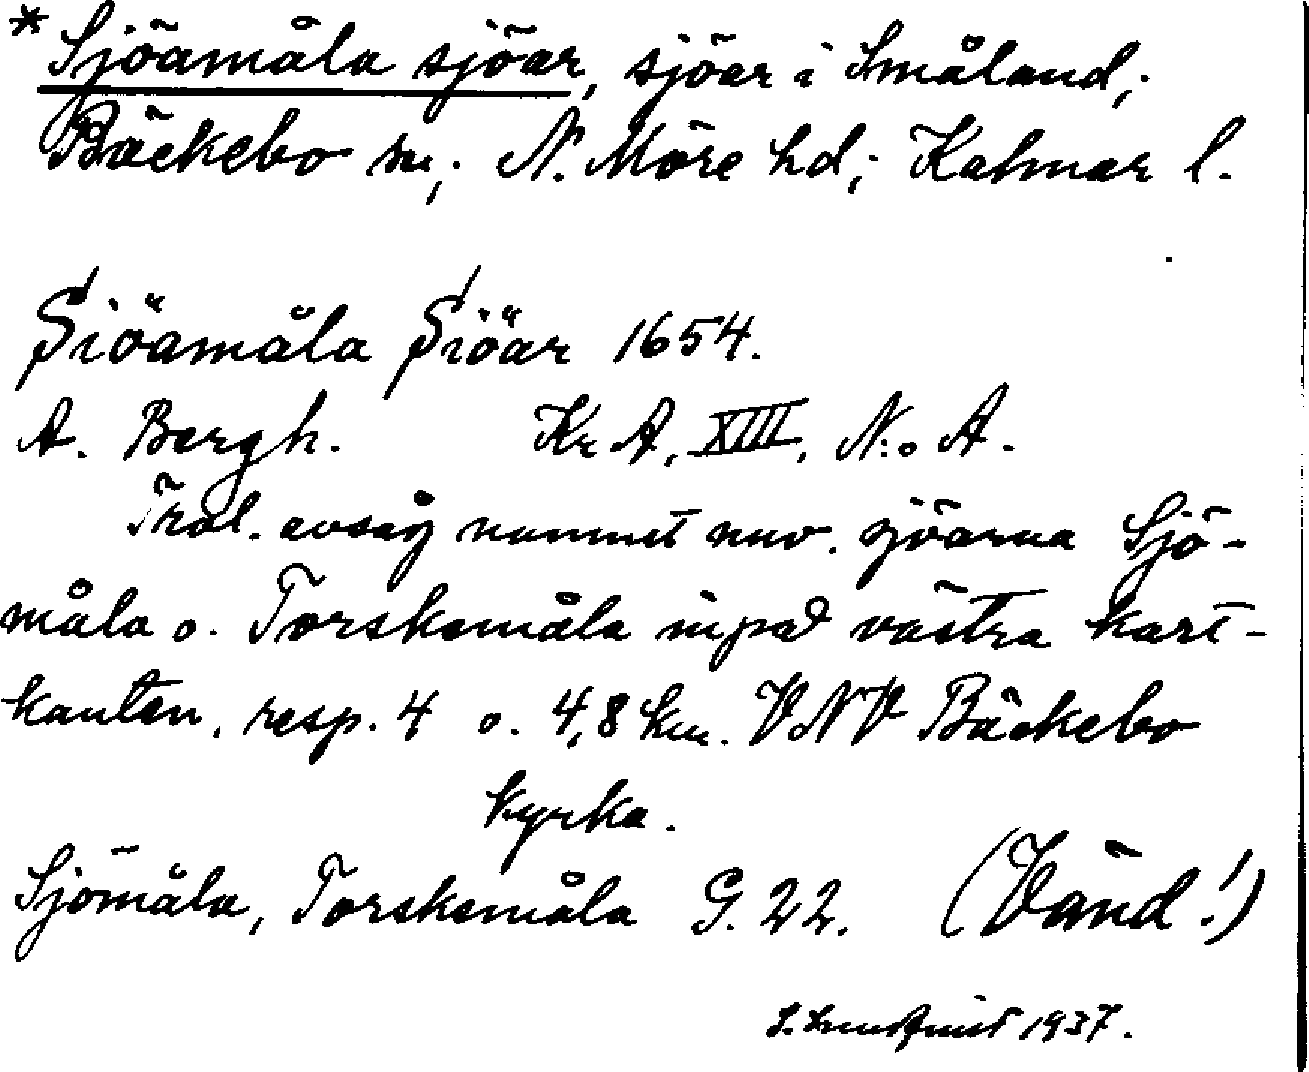 *Sjöamåla sjöar, sjöar i Småland;
Bäckebo sn; N. Möre hd; Kalmar l.
Siöamåla Siöar 1654.
A. Bergh. Kr A, XIII, N:o A.
Trol. avsåg namnet nuv. sjöarna Sjö-
måla o. Torskemåla inpå västra kart-
kanten, resp. 4 o. 4,8 km. VNV Bäckebo
kyrka.
Sjömåla, Torskemåla G. 22. (Vänd!)
1937.